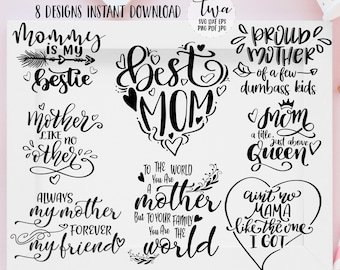 8 DESIGNS INSTANT DOWNLOAD
SVG DXF EPS
PNG PDF JPG
Mommy
is my
bestie
Best
MOM
PROUD
MOTHER
of a few
dumbass kids
Mother
LIKE NO
other
Mom
a title
just above
Queen
ALWAYS
my mother
FOREVER
my friend
TO THE
WORLD
You Are
A
mother
BUT TO YOUR FAMILY
You ARE THE
world
ain't no
MAMA
like the one
I GOT